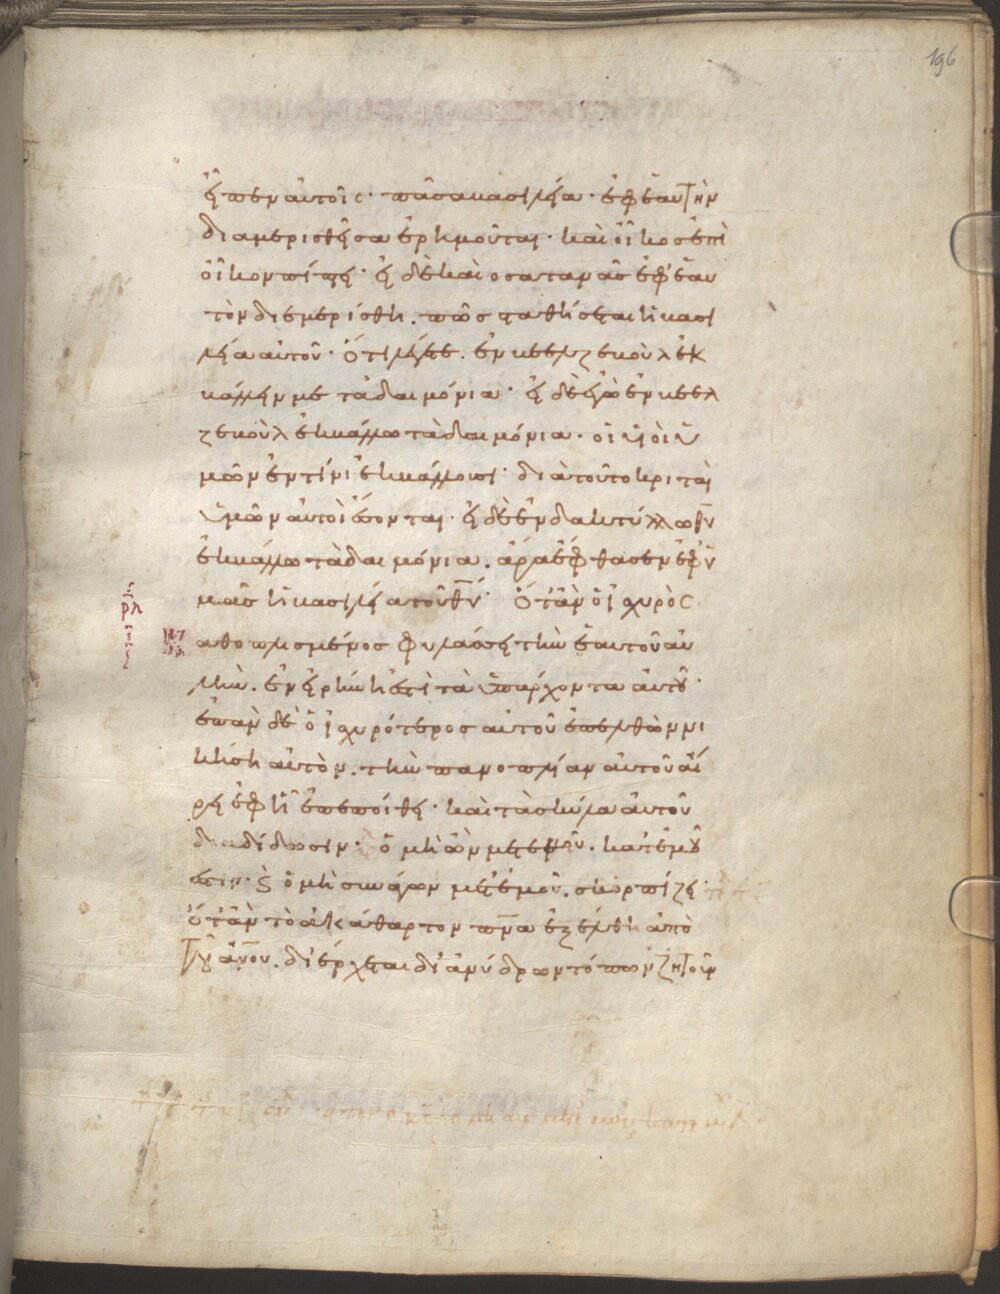 196
εἶπεν αὐτοῖς· πᾶσα βασιλεία· ἐφ ἑαυτὴν
διαμερισθεῖσα ἐρημοῦται· καὶ οἶκος ἐπὶ
οἶκον πίπτει· εἰ δὲ καὶ ο σατανᾶς ἐφ ἑαυ
τὸν διεμερίσθη. πῶς σταθήσεται ἡ βασι
λεία αὐτοῦ· Ὅτι λέγετε. ἐν βεελζεβοὺλ ἐκ
βάλλειν με τὰ δαιμόνια· εἰ δὲ ἐγὼ ἐν βεελ
ζεβοὺλ ἐκβάλλω τὰ δαιμόνια. οἱ υἱοὶ ὑ
μῶν ἐν τίνι ἐκβάλλουσι· διὰ τοῦτο κριταὶ
ὑμῶν αὐτοὶ ἔσονται· εἰ δὲ ἐν δακτύλλω θ̅υ̅
ἐκβάλλω τὰ δαιμόνια. ἄρα ἔφθασεν ἐφ ὑ
μᾶς ἡ βασιλεία τοῦ θ̅υ̅· Ὅταν ὁ ἰσχυρὸς
καθοπλισμένος φυλάσσει τὴν ἑαυτοῦ αὐ
λὴν. ἐν εἰρήνη ἐστὶ τὰ ὑπάρχοντα αὐτοῦ·
ἐπὰν δὲ ὁ ἰσχυρότερος αὐτοῦ ἐπελθὼν νι
κήση αὐτὸν. τὴν πανοπλίαν αὐτοῦ αἴ
ρει ἐφ ἧ ἐπεποίθει· καὶ τὰ σκύλα αὐτοῦ
διαδίδωσιν· ὁ μὴ ὢν μετ ἐμοῦ. κατ ἐμοῦ
ἐστιν· ϗ ὁ μὴ συνάγων μετ ἐμοῦ. σκορπίζει·
Ὅταν τὸ ἀκάθαρτον π̅ν̅α ἐξέλθη ἀπὸ
τοῦ ἀν̅ου. διέρχεται δι ἀνύδρων τόπων ζητοῦν